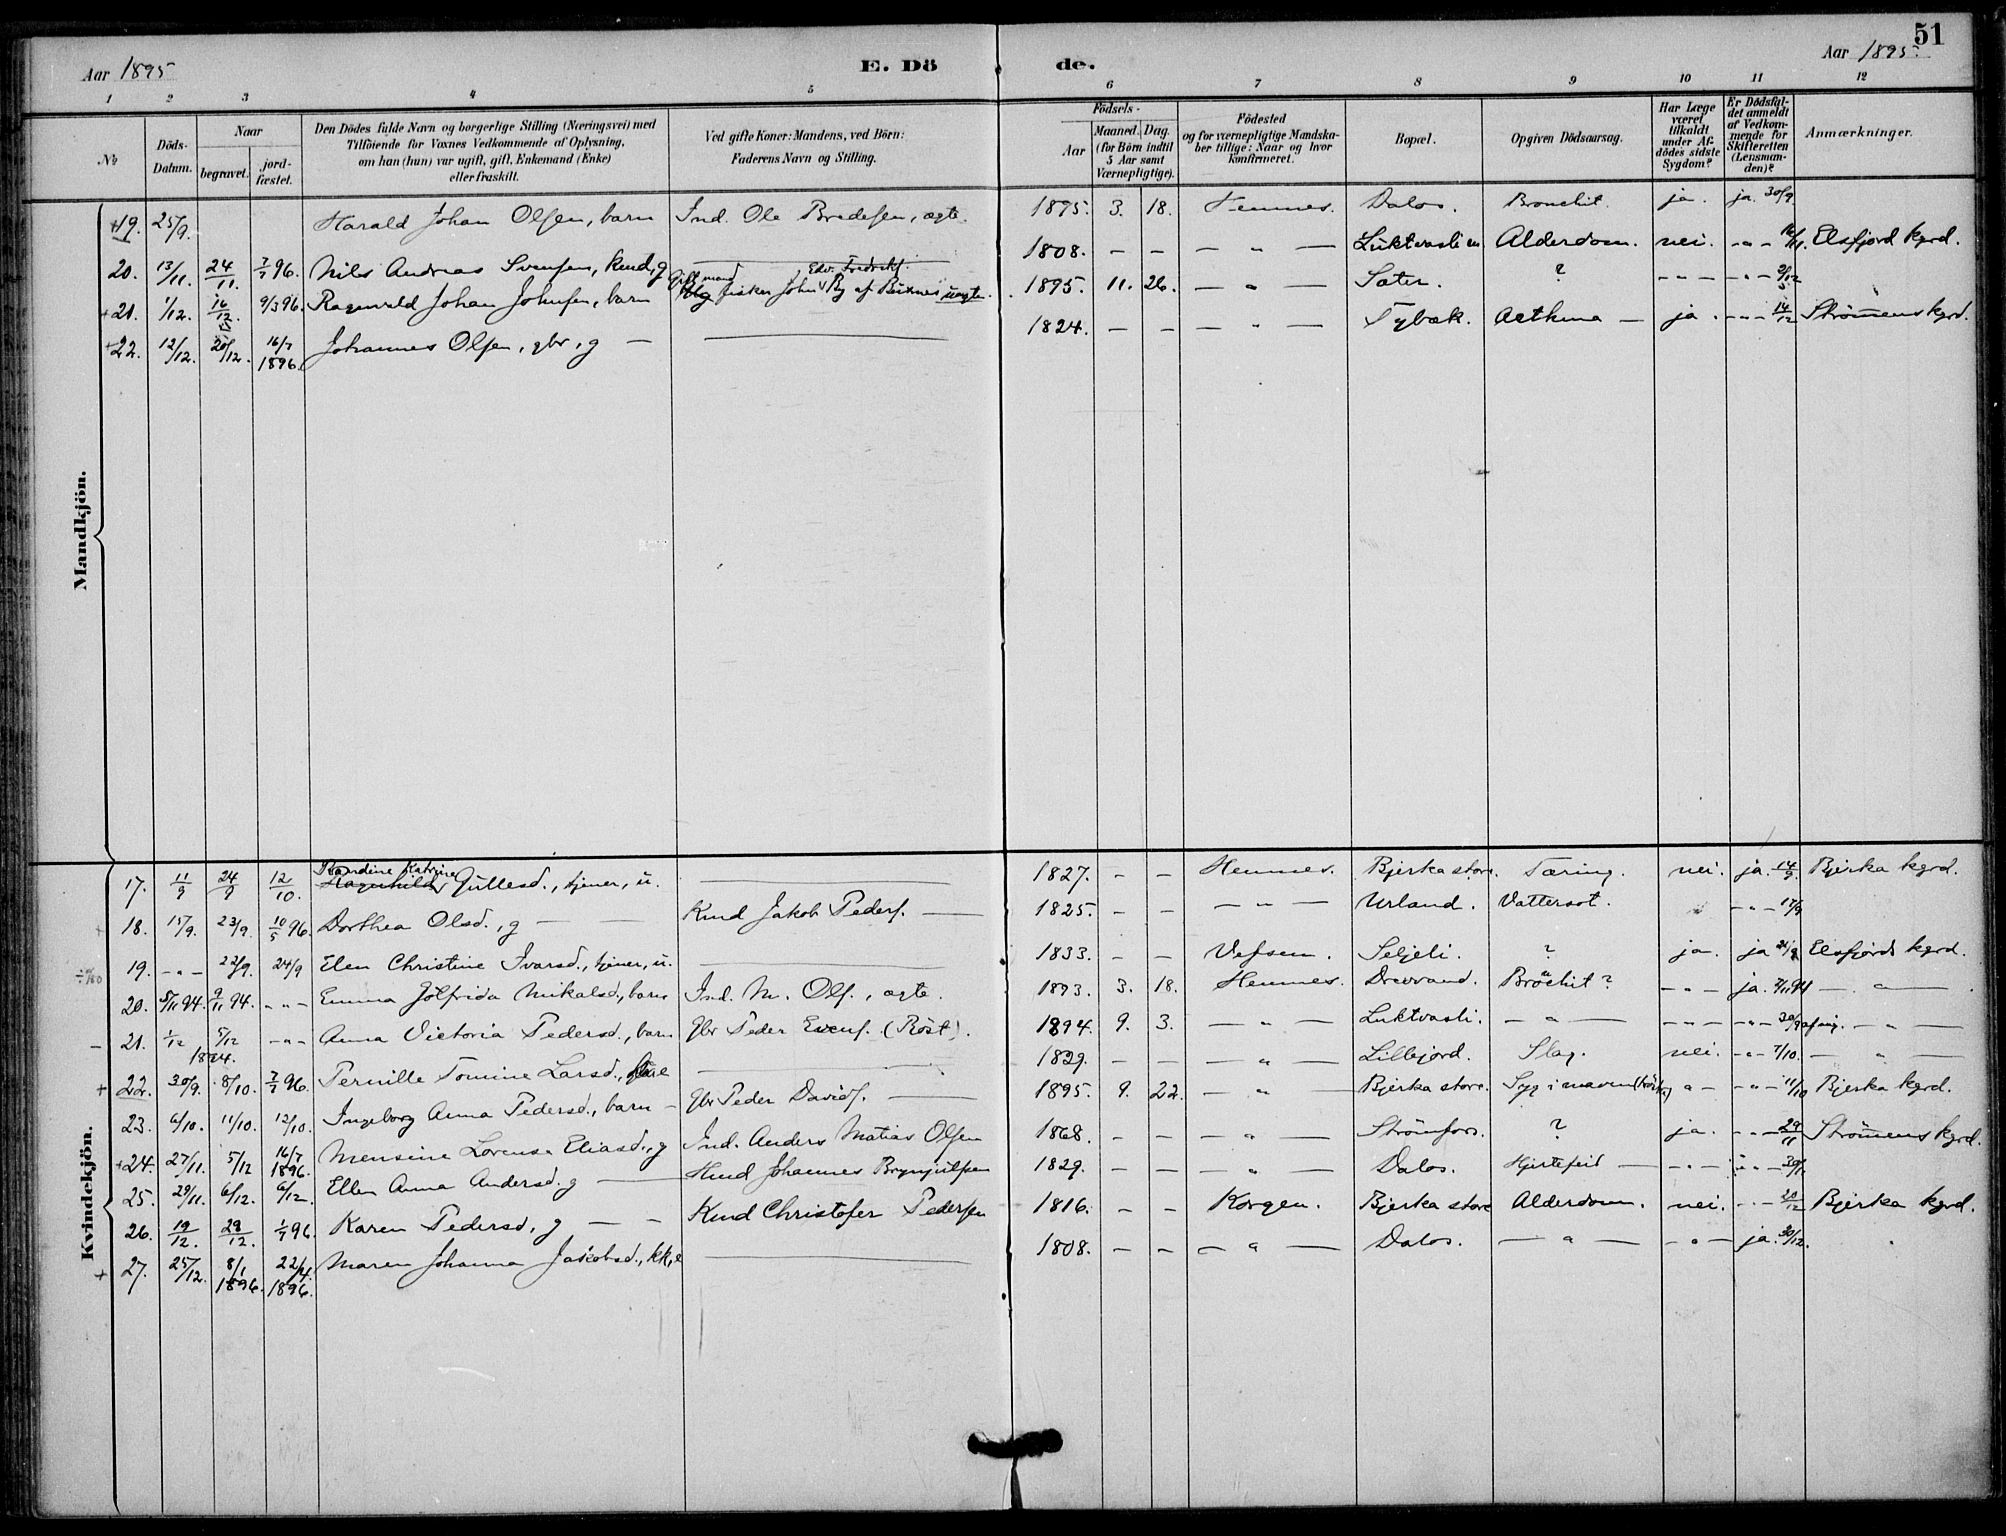 51
Aar 1895
E. Dö de.
Aar 1895.
1 2 3 4 5 6 7 8 9 10 11 12
№
Döds-Datum.
Naar
begravet.
jord-fæstet.
Den Dödes fulde Navn og borgerlige Stilling (Næringsvei) med
Tilföiende for Voxnes Vedkommende af Oplysning,
om han (hun) var ugift, gift, Enkemand (Enke)
eller fraskilt.
Ved gifte Koner: Mandens, ved Börn:
Faderens Navn og Stilling.
Födsels-
Aar
Maaned. Dag.
(for Börn indtil
5 Aar samt
Værnepligtige).
Födested
og for værnepligtige Mandska-
ber tillige: Naar og hvor
Konfirmeret.
Bopæl.
Opgiven Dödsaarsag.
Har Læge
været
tilkaldt
under Af-
dödes sidste
Sygdom?
Er Dödsfal-
det anmeldt
af Vedkom-
mende for
Skifteretten
(Lensman-
den)?
Anmærkninger.
Mandkjön.
+19. 25/9. Harald Johan Olsen, barn Ind. Ole Bredesen, ægte. 1895. 3. 18. Hemnes. Dalos. Bronchit. ja. ja. 30/9
20. 13/11. 24/11. 7/7 96. Nils Andreas Svensen, kund, g — 1808. — — — " — Luktvaslien Alderdom. nei. - " - 16/11. Elsfjord kgrd.
+21. 1/12. 16/12. 9/3 96. Ragnvald Johan Johnsen, barn Gift mand fisker John Edv. Fredriks. uægte. 1895. 11. 26. — " — Sæter. ? - " - - " - 2/12
+22. 12/12. 20/12. 16/7 1896. Johannes Olsen, gbr, g — — 1824. — — — " — Tybæk. Asthma — ja. - " - 14/12 Strømmens kgrd.
Kvindekjön.
17. 11/9 24/9 12/10. Randine Katrine Gullesd., tjener, u. — 1827. - - Hemnes. Bjerka store. Tæring. nei. ja. 14/9. Bjerka kgrd.
18. 15/9. 23/9. 10/5 96. Dorthea Olsd., g — — Kund Jakob Peders. — 1825. - - — " — Urland. Vattersot. - " - 17/9
19. - " - 22/9. 24/9 Elen Christine Ivarsd., tjener, u. — 1833. - - Vefsen. Seljeli. ? ja. ja Elsfjords kgrd.
20. 5/11 94. 9/11 94. - " - Emma Jolfrida Mikalsd., barn Ind. M. Ols., ægte. 1893. 3. 18. Hemnes. Drevvand. Bröchit? - " - ja. — " —
21. 1/12 5/12 1894. - " - Anna Victoria Pedersd., barn Gbr Peder Evens. (Röst). 1894. 9. 3. — " — Luktvasli. — " — - " - — " —
+ 22. 30/9. 8/10. 7/7 96. Pernille Tomine Larsd., — 1829. - - " Lillejord. Slag. nei. - " - 7/10. — " —
23. 6/10. 11/10. 12/10. Ingeborg Anna Pedersd., barn — Gbr Peder Davids. — 1895. 9. 22. — " Bjerka store. Syg i maven - " - 11/10 Bjerka kgrd.
+24. 27/11. 5/12 16/7 1896. Mensine Lorense Eliasd., g Ind. Anders Matias Olsen 1868. - - — " — Strømfors. ? ja. - " - 29/11 Strømmens kgrd.
25. 29/11. 6/12. 6/12 Ellen Anna Andersd. g — Kund Johannes Brynjulfsen 1829. - - — " — Dalos. Hjertefeil — - " -
26. 19/12. 29/12. 1/7 96. Karen Pedersd, g — — Kund Christofer Pedersen 1816. - - Korgen. Bjerka store Alderdom. nei. - " - 20/12 Bjerka kgrd.
+ 27. 25/12. 8/1 1896. 22/4. 1896. Maren Johanna Jakobsd., kk, e — 1808. - - — " — Dalos. — " — - " - ja. 30/12. "